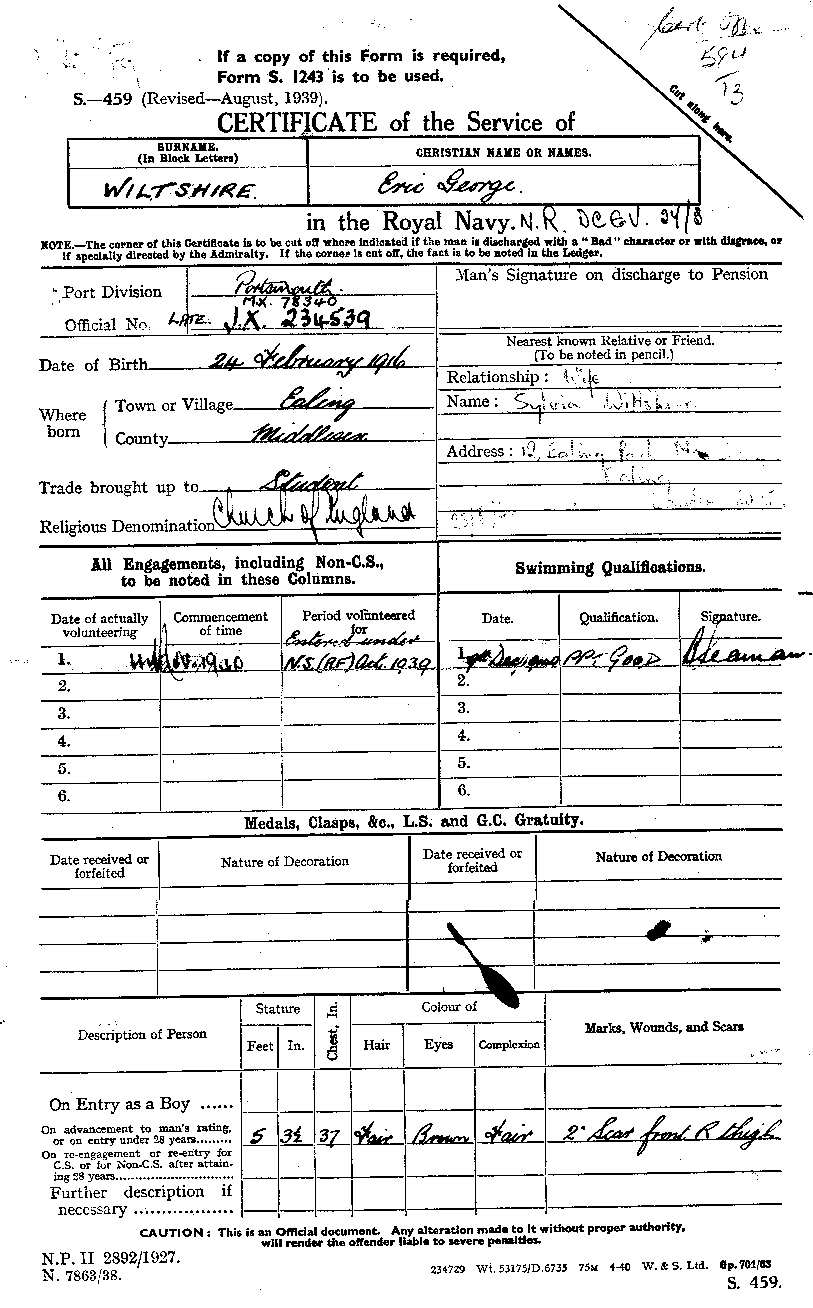 If a copy of this Form is required,
Form S. 1243 is to be used.
594
13
Cut along here.
S.—459 (Revised—August, 1939).
CERTIFICATE of the Service of
SURNAME.
(In Block Letters)
CHRISTIAN NAME OR NAMES.
WILTSHIRE.
Eric George.
in the Royal Navy. N.R.
NOTE.—The corner of this Certificate is to be cut off where indicated if the man is discharged with a "Bad" character or with disgrace, or
if specially directed by the Admiralty. If the corner is cut off, the fact is to be noted in the Ledger.
Port Division Portsmouth.
Man's Signature on discharge to Pension
M.X. 78340
Official No. LATE. J.X. 234539
Nearest known Relative or Friend.
(To be noted in pencil.)
Date of Birth 24 February 1916
Relationship: Wife
Where born
Town or Village Ealing
County Middlesex
Name: Sylvia Wiltshire
Address: 12, Ealing Park
Ealing
Trade brought up to Student
Religious Denomination Church of England
All Engagements, including Non-C.S.,
to be noted in these Columns.
Swimming Qualifications.
Date of actually volunteering
Commencement of time
Period volunteered for
Date.
Qualification.
Signature.
Entered under
1. N.S.(RF) Oct. 1939
1. PPT Good
2.
2.
3.
3.
4.
4.
5.
5.
6.
6.
Medals, Clasps, &c., L.S. and G.C. Gratuity.
Date received or forfeited
Nature of Decoration
Date received or forfeited
Nature of Decoration
Description of Person
Stature
Chest, In.
Colour of
Marks, Wounds, and Scars
Feet In. Hair Eyes Complexion
On Entry as a Boy ......
On advancement to man's rating,
or on entry under 28 years.........
5 3½ 37 Fair Brown Fair 2" Scar front R thigh
On re-engagement or re-entry for
C.S. or for Non-C.S. after attain-
ing 28 years..............................
Further description if
necessary ..................
CAUTION: This is an Official document. Any alteration made to it without proper authority,
will render the offender liable to severe penalties.
N.P. II 2892/1927.
N. 7863/38.
234729 Wt. 53175/D.6735 75M 4-40 W. & S. Ltd. Gp. 701/63
S. 459.